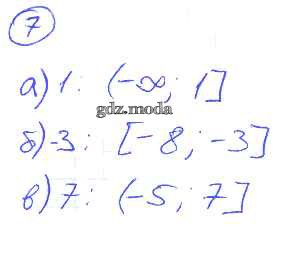 7
а) 1: (-∞; 1]
gdz.moda
б) -3: [-8; -3]
в) 7: (-5; 7]